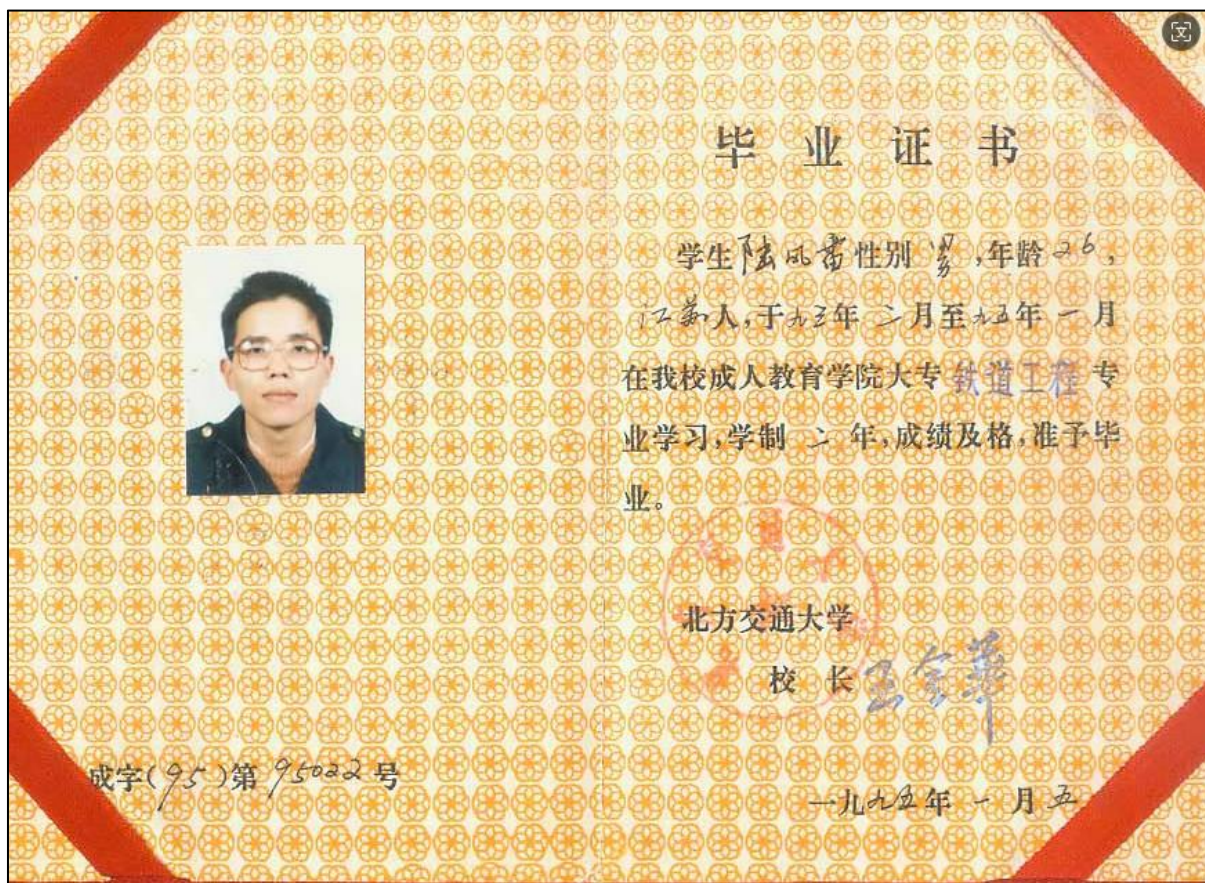 毕业证书
学生陆 性别 男,年龄 26,
江苏人,于九三年 二月至九五年 一月
在我校成人教育学院大专 铁道工程 专
业学习,学制 二 年,成绩及格,准予毕
业。
北方交通大学
校 长 王金華
成字(95)第 95022 号
一九九五年 一 月 五